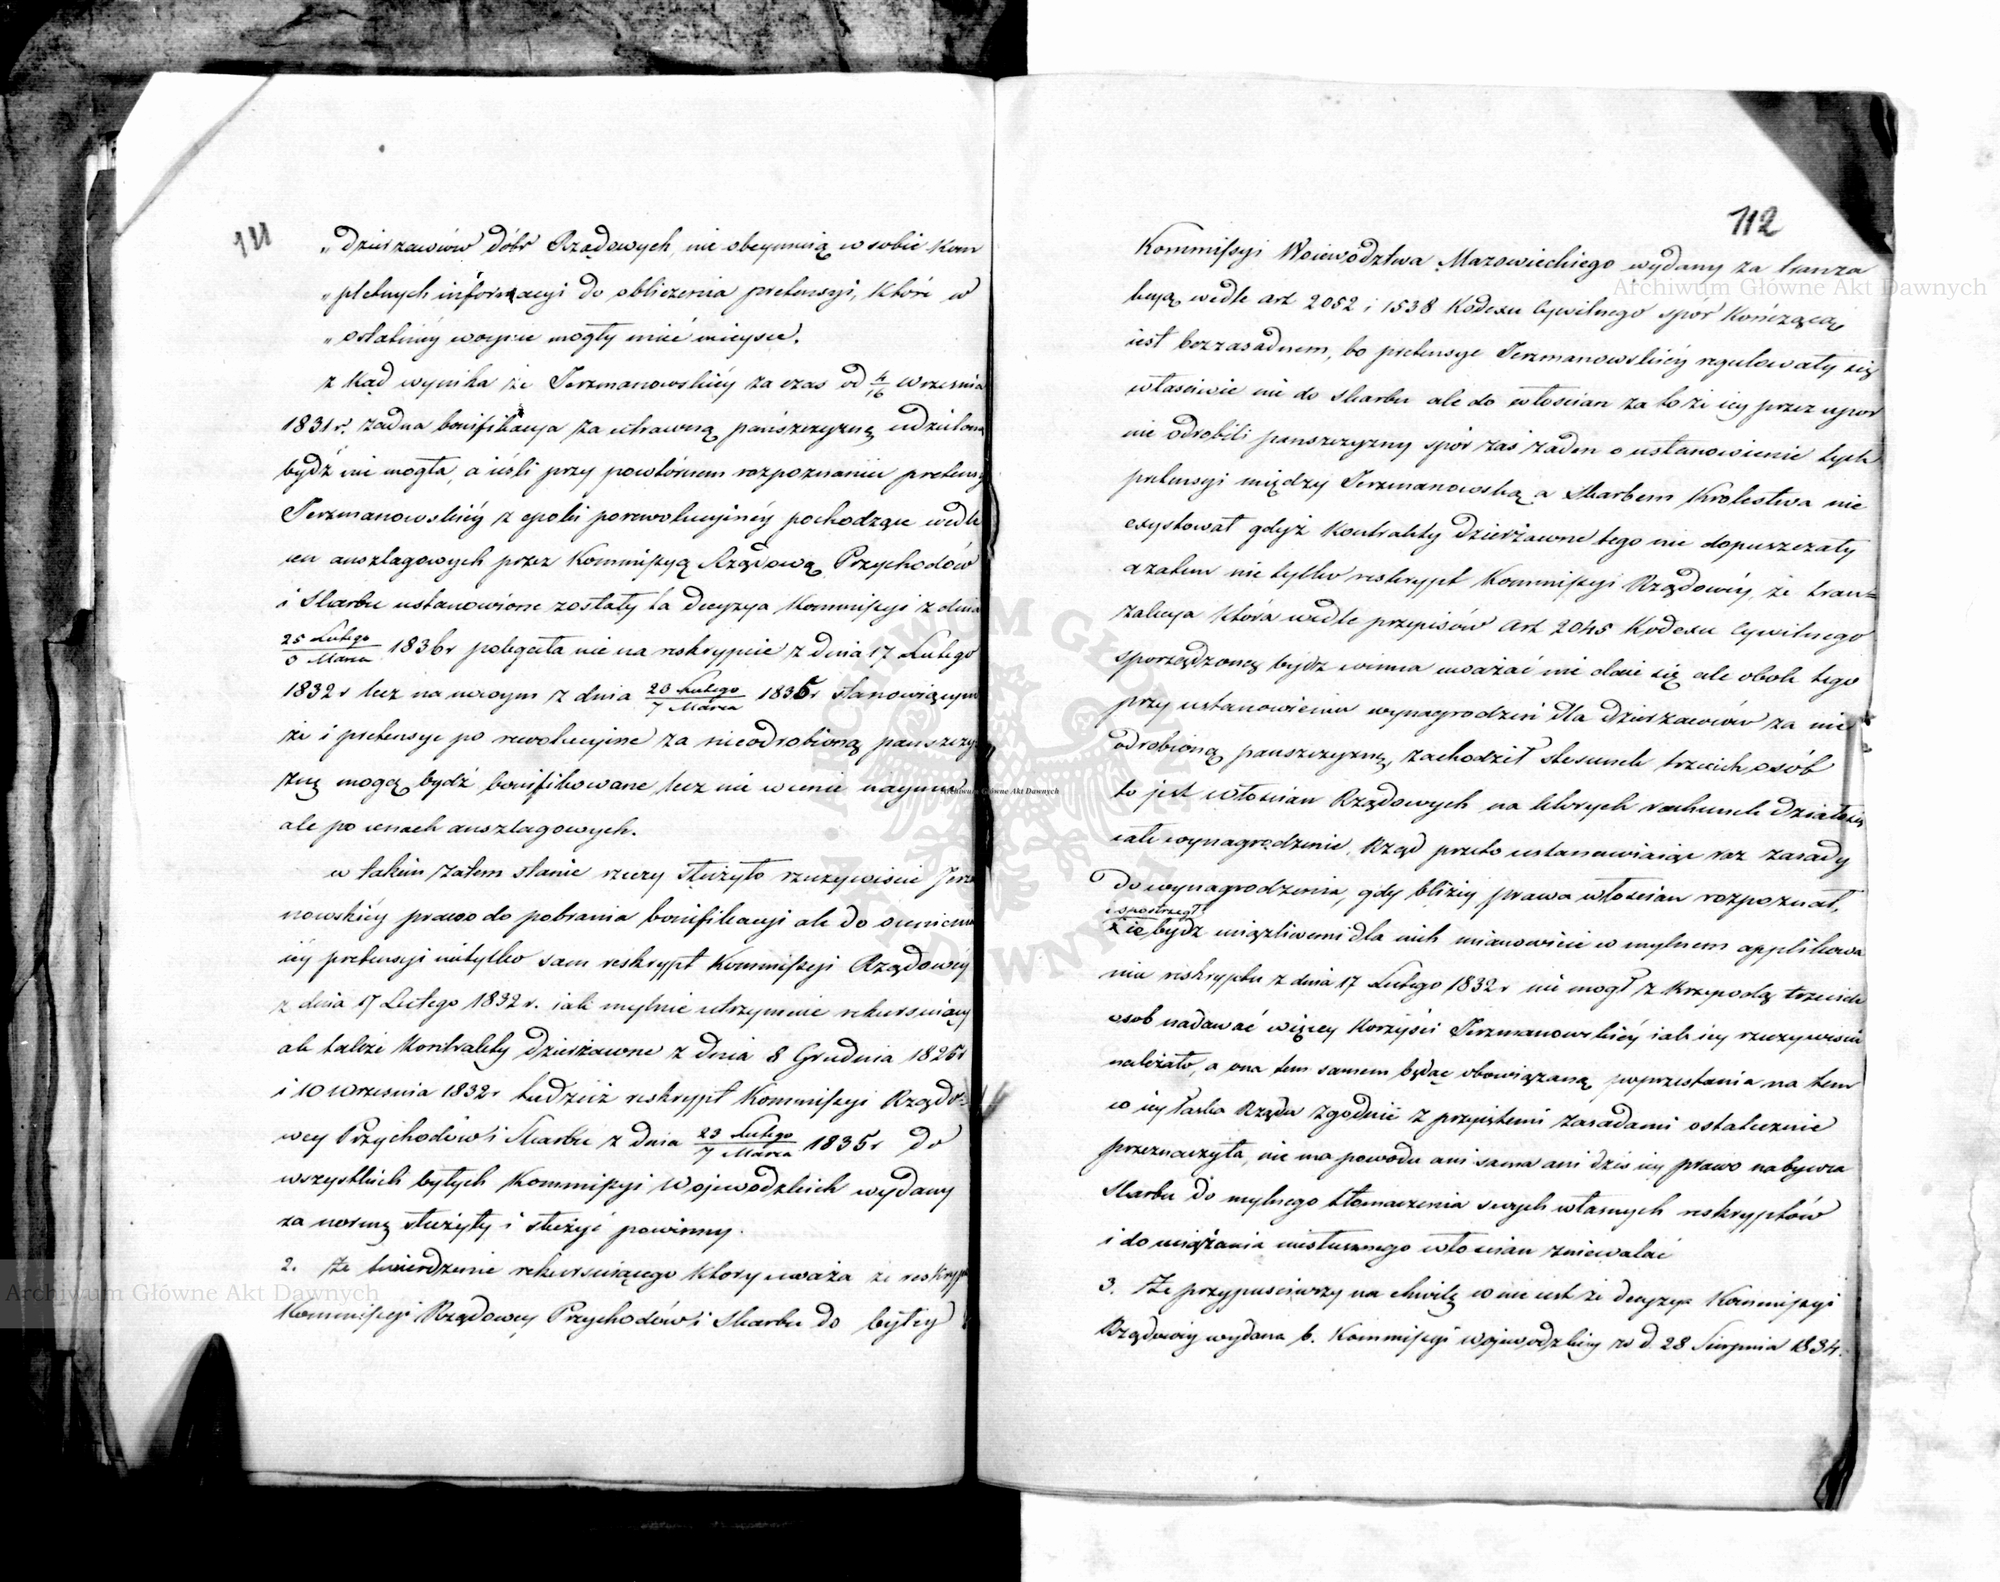 111
„dzierzawców dóbr Rządowych, nie obeymuią w sobie kom
„pletnych informacyi do obliczenia pretensyi, które w
„ostatniéy woynie mogły mieć mieysce.
z kąd wynika że Jerzmanowskiéy za czas od 4/16 Wrzesnia
1831 r. żadna bonifikacya za utraconą pańszczyznę udzieloną
bydź nie mogła, a ieśli przy powtórnem rozpoznaniu pretensy
Jerzmanowskiéy z epoki porewolucyjnéy pochodzące wedle
cen anszlagowych przez Kommissyą Rządową Przychodów
i Skarbu ustanowione zostały ta decyzya Kommissyi z dnia
25 Lutego / 8 Marca 1836 r polegała nie na reskrypcie z dnia 17 Lutego
1832 r lecz na nowym z dnia 23 Lutego / 7 Marca 1835 r stanowiącym
że i pretensye po rewolucyjne za nieodrobioną pańszczy
znę mogą bydź bonifikowane lecz nie w cenie naymu
ale po cenach anszlagowych.
w takim zatem stanie rzeczy służyło rzeczywiscie Jerz
nowskiéy prawo do pobrania bonifikacyi ale do ocenienia
iéy pretensyi nietylko sam reskrypt Kommissyi Rządowéy
z dnia 17 Lutego 1832 r. iak mylnie utrzymuie rekursuiący
ale także kontrakty dzierżawne z dnia 8 Grudnia 1826 r
i 10 Wrzesnia 1832 r tudzież reskrypt Kommissyi Rządo-
wey Przychodów i Skarbu z dnia 23 Lutego / 7 Marca 1835 r do
wszystkich byłych Kommissyi Wojewódzkich wydany
za normę służyły i służyć powinny.
2. Że twierdzenie rekursuiącego który uważa że reskryp
Kommissyi Rządowey Przychodów i Skarbu do byłey
112
Kommissyi Woiewództwa Mazowieckiego wydany za tranza
kcyą wedle art 2052 i 1538 Kodexu Cywilnego spór kończącą
iest bezzasadnem, bo pretensye Jerzmanowskiéy regulowały się
własciwie nie do skarbu ale do włoscian za to że iey przez upor
nie odrobili panszczyzny spór zaś żaden o ustanowienie tych
pretensyi między Jerzmanowską a Skarbem Krolestwa nie
exystował gdyż kontrakty dzierżawne tego nie dopuszczały
a zatem nie tylko reskrypt Kommissyi Rządowéy, że tran=
zakcya która wedle przepisów art 2045 Kodexu Cywilnego
sporządzoną bydz winna uważać nie daie się ale obok tego
przy ustanowieniu wynagrodzeń dla dzierzawców za nie
odrobioną panszczyznę, zachodził stosunek trzecich osób
to jest włoscian Rządowych na których rachunek działo się
całe wynagrodzenie, Rząd przeto ustanawiaiąc raz zasady
do wynagrodzenia, gdy bliżéy prawa włoscian rozpoznał,
i spostrzegł
że bydz uciążliwemi dla nich mianowicie w mylnem applikowa
niu reskryptu z dnia 17 Lutego 1832 r nie mogł z krzywdą trzecich
osob nadawać więcey korzyści Jerzmanowskiéy iak iey rzeczywiscie
należało, a ona tem samem będąc obowiązaną poprzestania na tem
co iey łaska Rządu zgodnie z przyiętemi zasadami ostatecznie
przeznaczyła, nie ma powodu ani sama ani dziś iey prawo nabywca
Skarbu do mylnego tłomaczenia swych własnych reskryptów
i do uciążania niesłusznego włoscian zniewalać
3. Że przypusciwszy na chwilę co nie iest że decyzya Kommissyi
Rządowéy wydana b. Kommissyi Wojewodzkiey w d. 28 Sierpnia 1834.
Archiwum Główne Akt Dawnych
Archiwum Główne Akt Dawnych
Archiwum Główne Akt Dawnych
ARCHIWUM GŁÓWNE AKT DAWNYCH